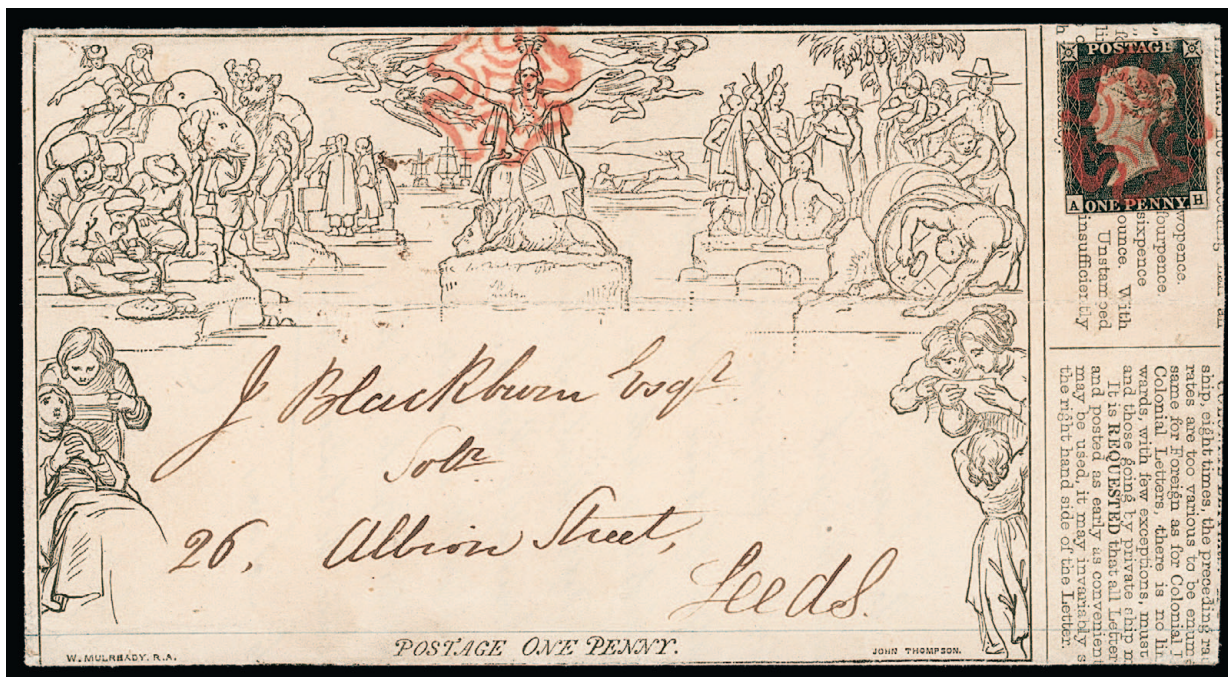 POSTAGE
A ONE PENNY H
J Blackburn Esqr
Solr
26, Albion Street,
Leeds.
POSTAGE ONE PENNY.
W. MULREADY, R.A.
JOHN THOMPSON.
twopence.
fourpence
sixpence
ounce. With
Unstamped
insufficiently
ship, eight times, the preceding
rates are too various to be
same for Foreign as for Colonial
Colonial Letters, there is no
wards, with few exceptions, must
and those going by private ship
It is REQUESTED that all
and posted as early as convenient
may be used, it may invariably
the right hand side of the Letter.